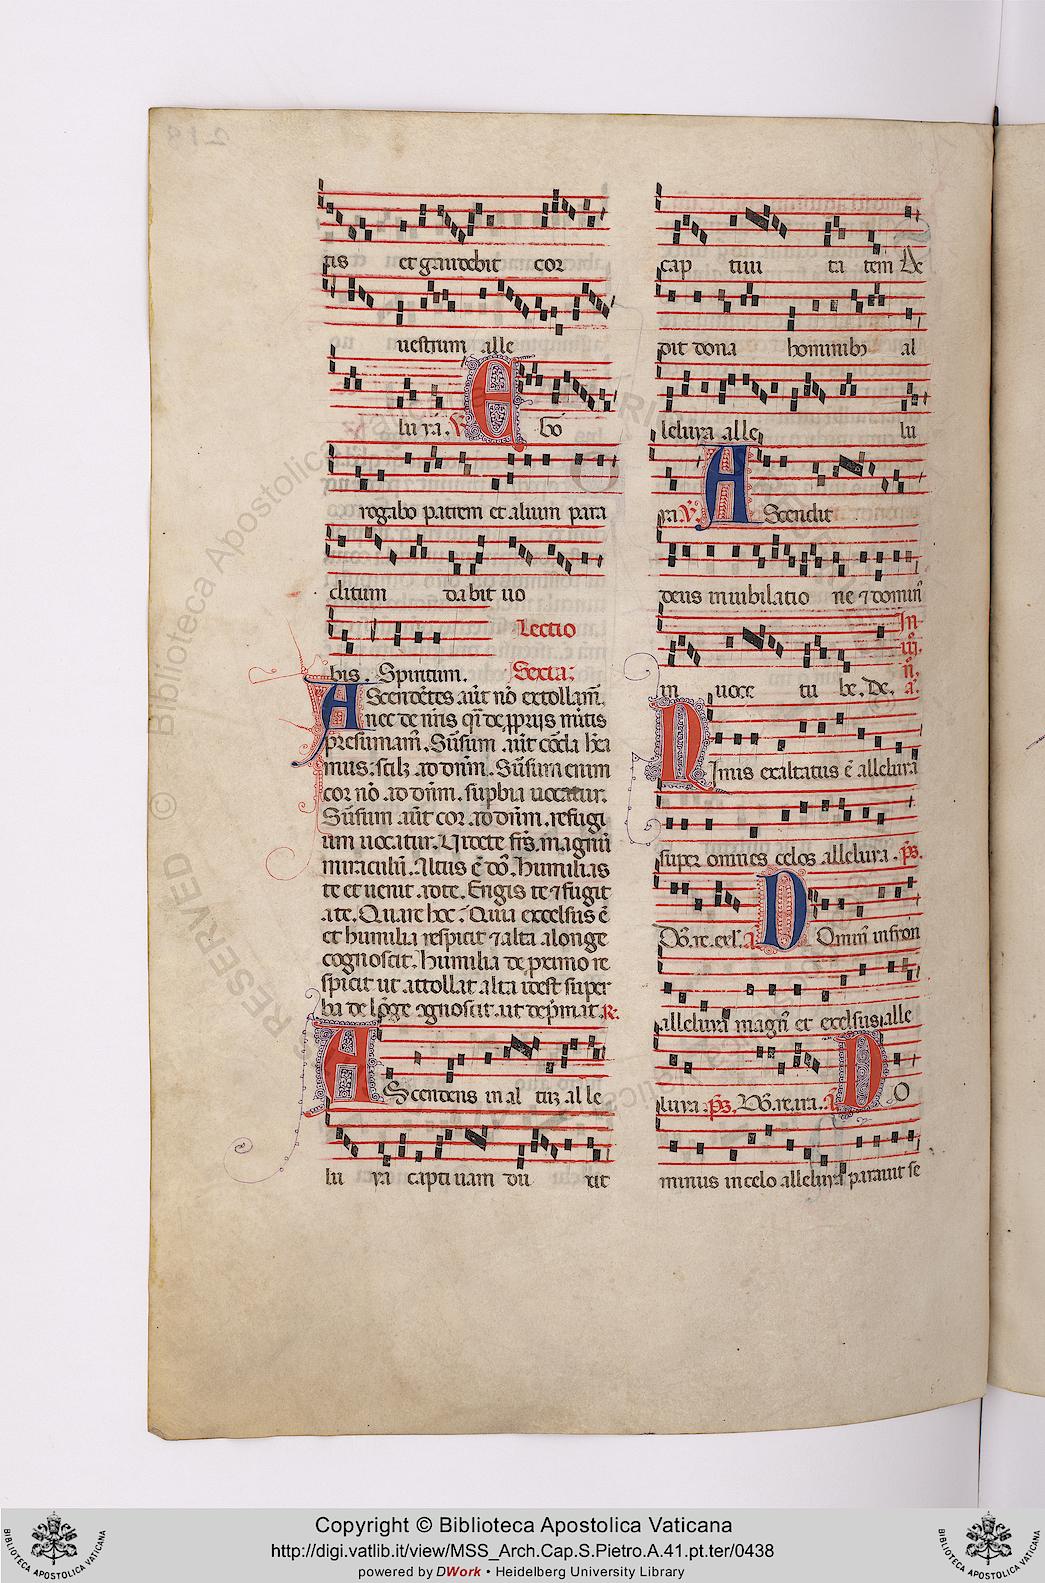 219
tis et gaudebit cor
uestrum alle
lu ya. V. Ego
rogabo patrem et alium para
clitum dabit uo
bis. Spiritum. Lectio
Sexta:
Ascendẽtes aũt nõ extollam̃.
nec de nr̃is q̃ de ꝓprijs uirib;
presumam̃. Sursum aũt corda habea
mus: scilz ad dnm̃. Sursum enim
cor nõ ad dnm̃. supbia uocatur.
Sursum aũt cor ad dnm̃. refugi
um uocatur. Videte frs̃. magnũ
miraculũ. Altus ẽ dõ. humilias
te et uenit ad te. Erigis te ⁊ fugit
a te. Quare hoc: Quia excelsus ẽ
et humilia respicit ⁊ alta a longe
cognoscit. humilia de proximo re
spicit ut attollat alta idest super
ba de lõge cognoscit. ut dep̃mat. R.
AScendens in al tum alle
lu ya captiuam du xit
cap tiui ta tem De
dit dona hominibꝫ al
leluya alle lu
ya. V. AScendit
deus in iubilatio ne ⁊ domin̾
in uoce tu be. De.
NImis exaltatus ẽ alleluya
super omnes celos alleluya. ps.
Dõ. re. exl. a. DOmin̾ in syon
alleluya magn̾ et excelsus alle
luya. ps. Dõ. re. ira. a. DO
minus in celo alleluya parauit se
RESERVED © Biblioteca Apostolica Vaticana
Copyright © Biblioteca Apostolica Vaticana
http://digi.vatlib.it/view/MSS_Arch.Cap.S.Pietro.A.41.pt.ter/0438
powered by DWork • Heidelberg University Library
BIBLIOTECA APOSTOLICA VATICANA
BIBLIOTECA APOSTOLICA VATICANA